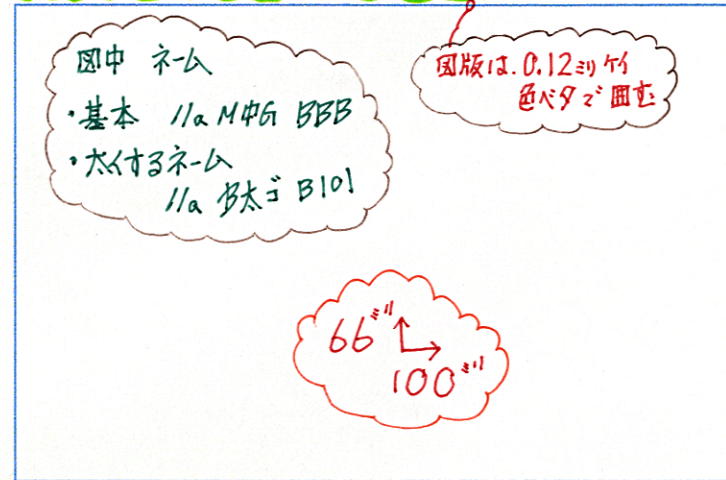 図中 ネーム
・基本 11Q M中G BBB
・太くするネーム
11Q B太ゴ B101
図版は、0.12ミリケイ
色ベタで囲む
66ミリ↑
→
100ミリ